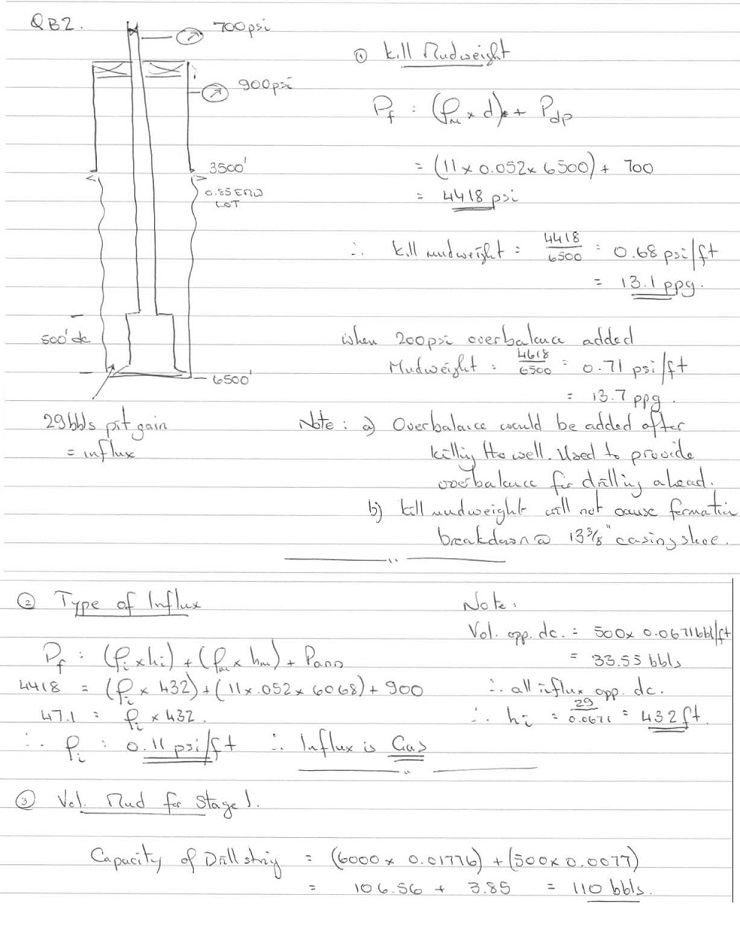 QB2.
700psi
900psi
3500'
0.85 EMW
LOT
500' dc
6500'
29bbls pit gain
= influx
① Kill Mudweight
Pf : (ρm x d) + Pdp
= (11 x 0.052 x 6500) + 700
= 4418 psi
∴ Kill mudweight = 4418/6500 = 0.68 psi/ft
= 13.1 ppg.
when 200psi overbalance added
Mudweight = 4618/6500 = 0.71 psi/ft
= 13.7 ppg.
Note : a) Overbalance would be added after
killing the well. Used to provide
overbalance for drilling ahead.
b) Kill mudweight will not cause formation
breakdown @ 13 3/8" casing shoe.
② Type of Influx
Pf : (ρi x hi) + (ρm x hm) + Pann
4418 = (ρi x 432) + (11 x .052 x 6068) + 900
47.1 = ρi x 432.
∴ ρi : 0.11 psi/ft ∴ Influx is Gas
Note.
Vol. opp. dc. = 500 x 0.0671 bbl/ft
= 33.55 bbls
∴ all influx opp. dc.
∴ hi = 29/0.0671 = 432 ft.
③ Vol. Mud for Stage 1.
Capacity of Drillstring = (6000 x 0.01776) + (500 x 0.0077)
= 106.56 + 3.85 = 110 bbls.